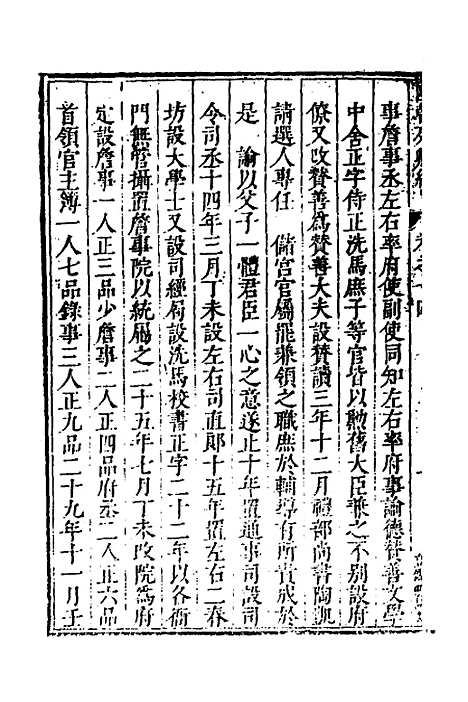 事詹事丞左右率府使副使同知左右率府事諭德贊善文學
中舍正字侍正洗馬庶子等官皆以勲舊大臣兼之不別設府
僚又改贊善爲贊善大夫設贊讀三年十二月禮部尚書陶凱
請選人專任　儲宮官屬罷兼領之職庶於輔導有所責成於
是　諭以父子一體君臣一心之意遂止十年置通事司設司
令司丞十四年三月丁未設左右司直郞十五年置左右二春
坊設大學士又設司經局設洗馬校書正字二十二年以各衙
門無管攝置詹事院以統屬之二十五年七月丁未改院爲府
定設詹事一人正三品少詹事二人正四品府丞二人正六品
首領官主簿一人七品錄事三人正九品二十九年十一月于